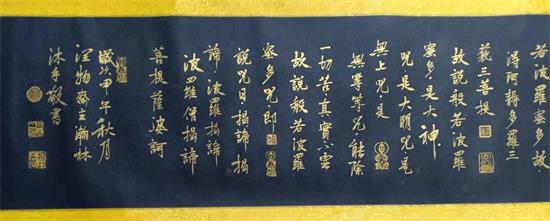 若波羅蜜多故
得阿耨多羅三
藐三菩提
故説般若波羅
蜜多是大神
咒是大明咒是
無上咒是
無等等咒能除
一切苦真實不虛
故説般若波羅
蜜多咒即
説咒曰揭諦揭
諦波羅揭諦
波羅僧揭諦
菩提薩婆訶
歲次甲午秋月
物齋主瀚林
沐手敬書